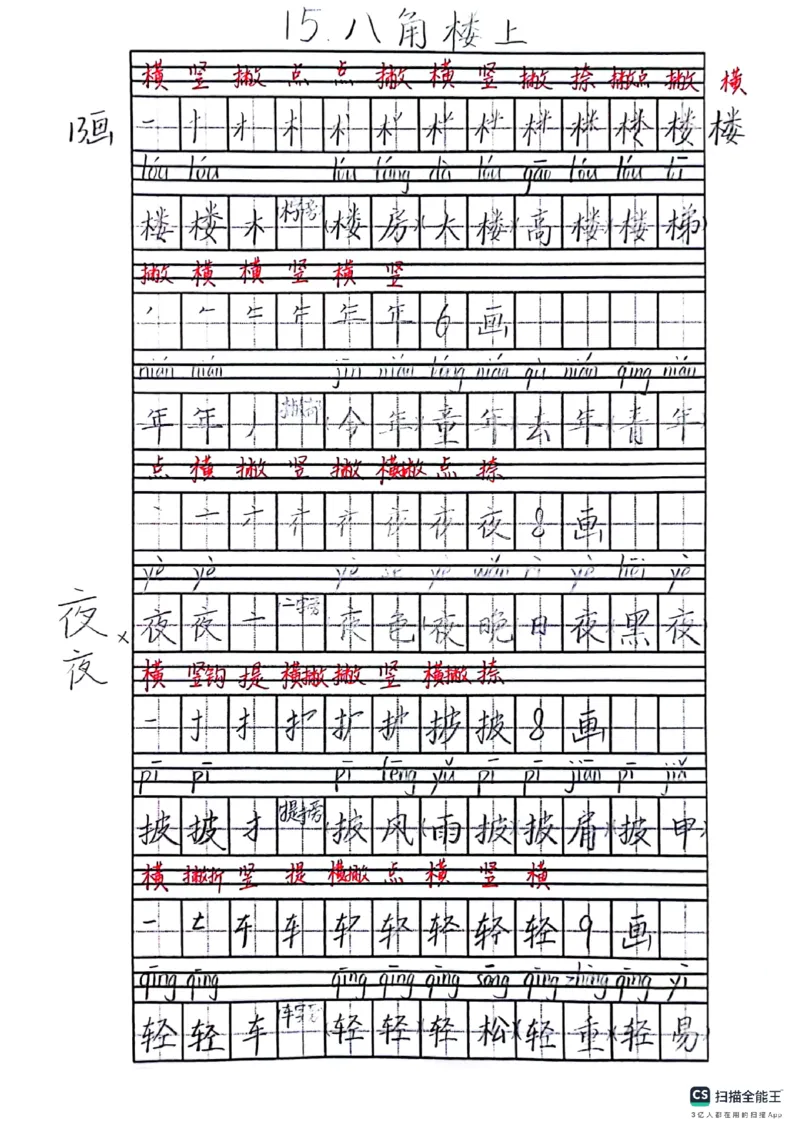 15.八角楼上
横 竖 撇 点 点 撇 横 竖 撇 捺 撇点 撇 横
13画 楼
lóu lóu lóu fáng dà lóu gāo lóu lóu tī
楼 楼 木 木字旁 (楼 房)(大 楼)(高 楼)(楼 梯)
撇 横 横 竖 横 竖
年 6 画
nián nián jīn nián tóng nián qù nián qīng nián
年 年 丿 (今 年)(童 年)(去 年)(青 年)
点 横 撇 竖 撇 横撇 点 捺
夜 8 画
yè yè yè yè wǎn rì yè hēi yè
夜 夜 × 夜 夜 亠 夜 色 (夜 晚) 日 夜 (黑 夜)
横 竖钩 提 横撇 撇 竖 横撇 捺
一 扌 披 披 8 画
pī pī pī fēng yǔ pī pī jiān pī jiǎ
披 披 扌 提手旁 (披 风)(雨 披)(披 肩)(披 甲)
横 撇折 竖 提 横撇 点 横 竖 横
一 车 轻 轻 轻 9 画
qīng qīng qīng qīng qīng sōng qīng zhòng qīng yì
轻 轻 车 车字旁 (轻 轻)(轻 松)(轻 重)(轻 易)
CS 扫描全能王
3亿人都在用的扫描App